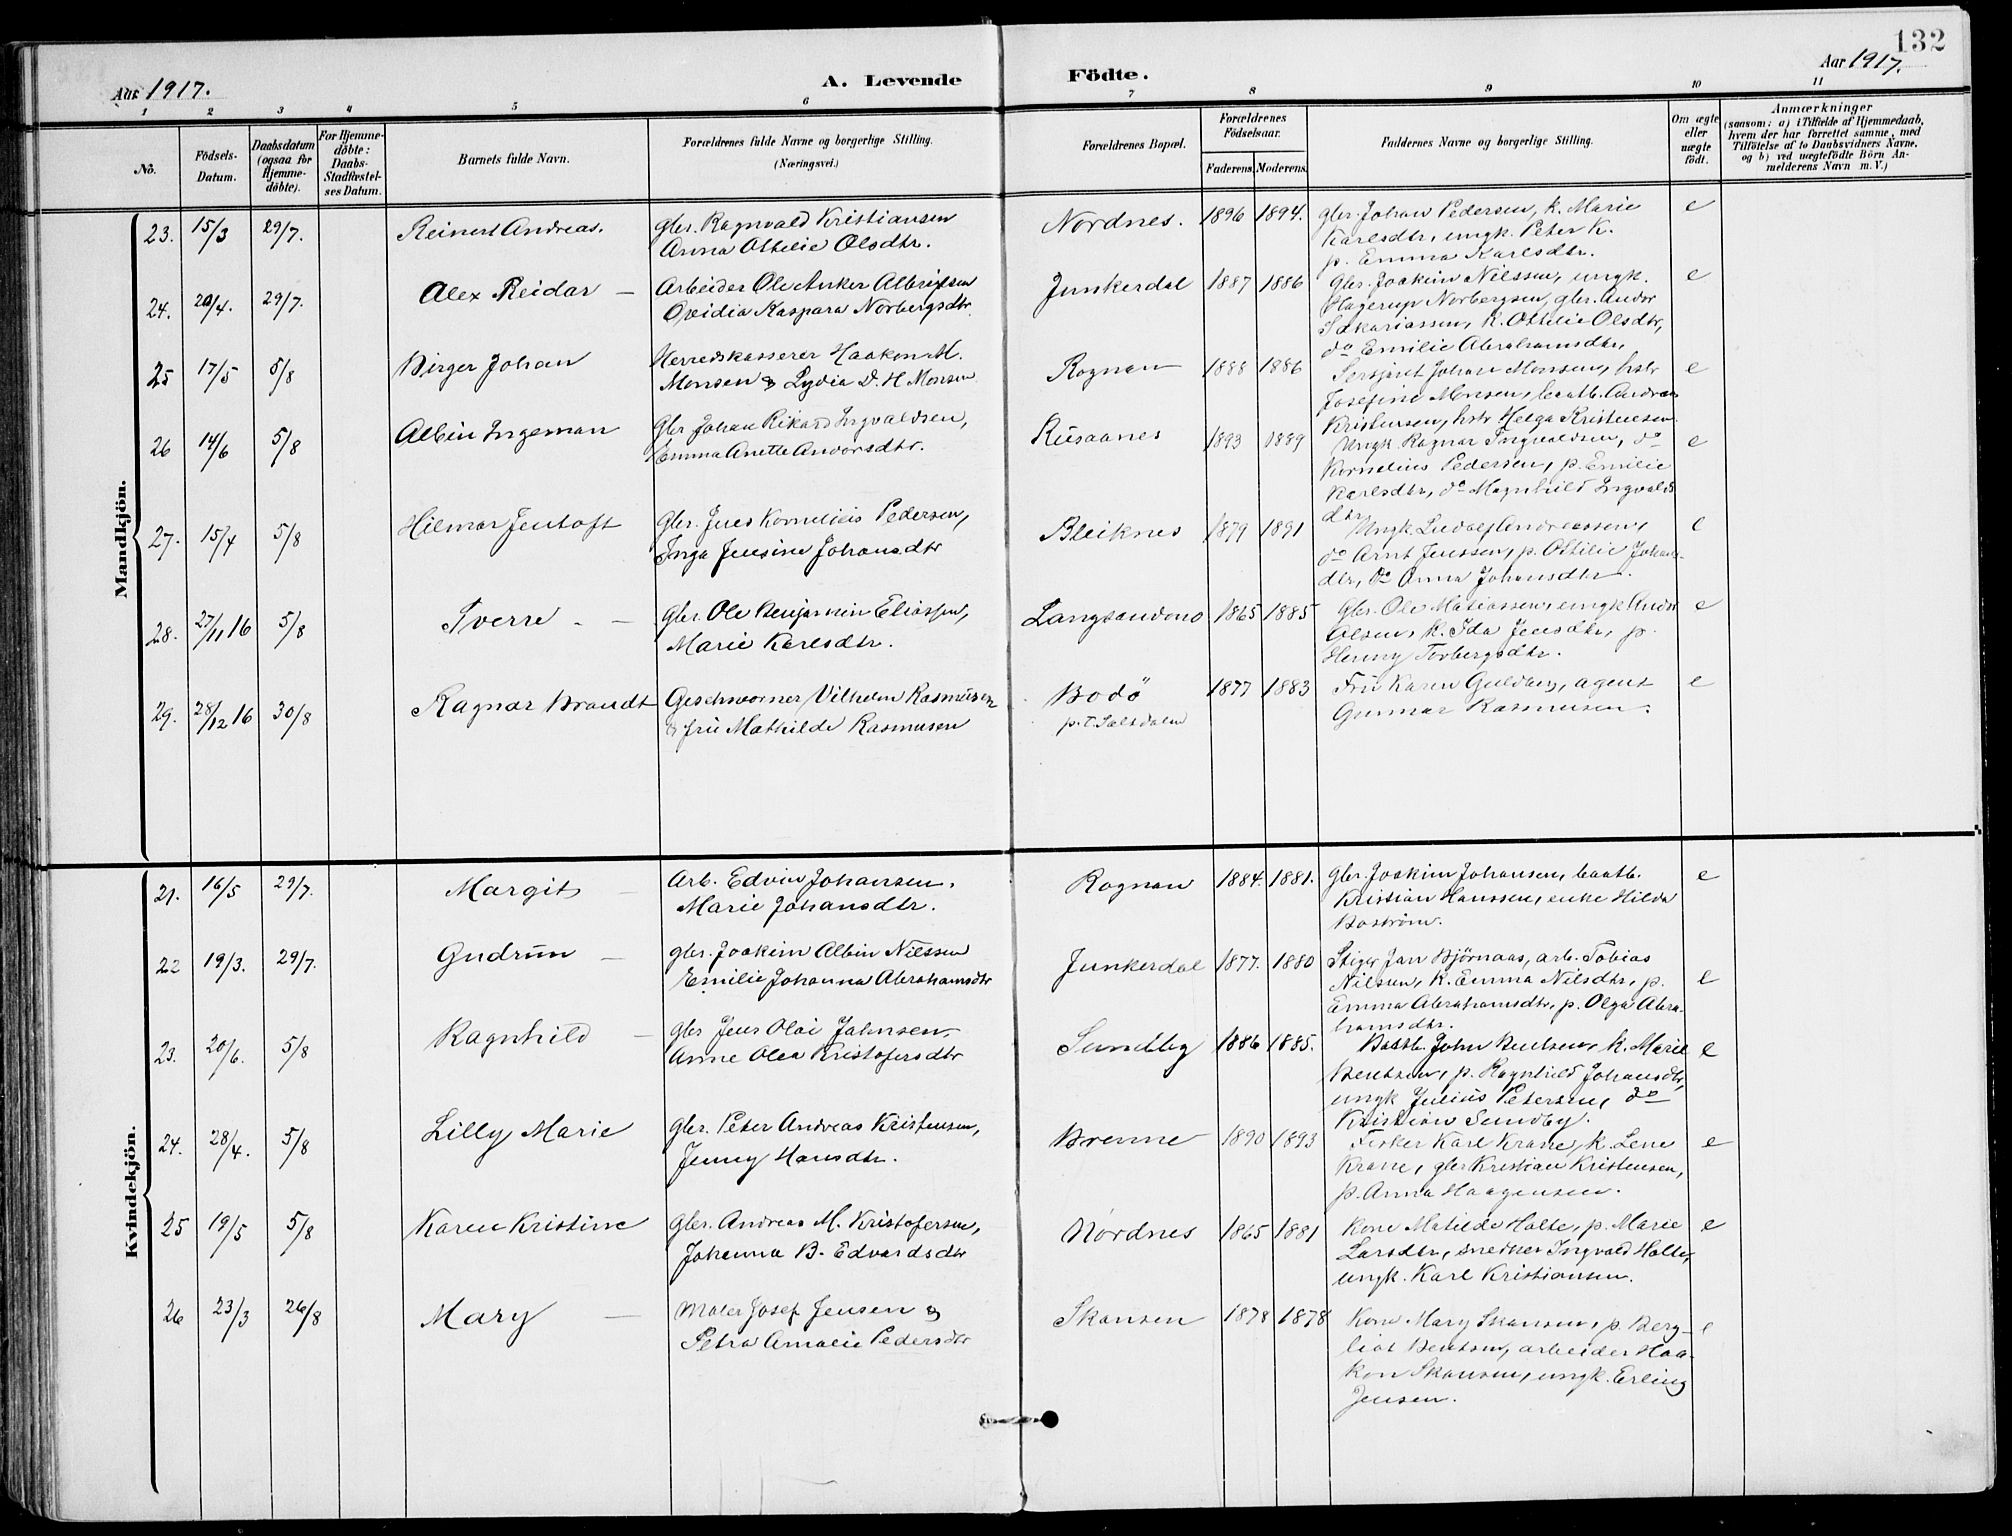 132
Aar 1917.
A. Levende
Födte.
Aar 1917.
1 2 3 4 5 6 7 8 9 10 11
No.
Födsels-
Datum.
Daabsdatum
(ogsaa for
Hjemme-
döbte).
For Hjemme-
döbte:
Daabs-
Stadfæstel-
ses Datum.
Barnets fulde Navn.
Forældrenes fulde Navne og borgerlige Stilling.
(Næringsvei.)
Forældrenes Bopæl.
Forældrenes
Födselsaar.
Faderens. Moderens.
Faddernes Navne og borgerlige Stilling.
Om ægte
eller
uægte
födt.
Anmærkninger
(saasom: a) i Tilfælde af Hjemmedaab,
hvem der har forrettet samme, med
Tilföielse af to Daabsvidners Navne,
og b) ved uægtefödte Börn An-
melderens Navn m. V.)
Mandkjön.
23. 15/3 29/7. Reinert Andreas. gbr. Ragnvald Kristiansen
Anna Ottelie Olsdtr.
Nordnes. 1896 1894. gbr. Johan Pedersen, k. Marie
Karlsdtr, ungk. Peter K.
p. Emma Karlsdtr.
e
24. 20/4. 29/7. Alex Reidar – Arbeider Ole Anker Albrigtsen
Ovidia Kaspara Norbergsdtr.
Junkerdal 1887 1886 Gbr. Joakim Nilssen, ungk.
Hagerup Norbergsen, gbr. Andor
Sakariassen, k. Ottilie Olsdtr,
do Emilie Abrahamsdtr,
e
25 17/5 5/8 Birger Johan Herredskasserer Haakon M.
Monsen & Lydia D. H Monsen
Rognan 1888 1886 Sersjant Johan Monsen, hstr
Josefine Monsen, baatb. Andreas
Kristensen, hstr Helga Kristensen
e
26 14/6 5/8 Albin Ingeman Gbr Johan Rikard Ingvaldsen,
Emma Anette Andorsdtr.
Rusaanes 1893 1889 Ungk. Ragnar Ingvaldsen, do
Kornelius Pedersen, p. Emilie
Karlsdtr, do Magnhild Ingvalds
dtr.
e
27. 15/4 5/8 Hilmar Jentoft Gbr. Jens Kornelius Pedersen,
Inga Jensine Johansdtr
Bleiknes 1879 1891 Ungk. Ludolf Andreassen,
do Arnt Jenssen, p. Ottilie Johans-
dtr, do Anna Johansdtr.
e
28. 27/11 16 5/8 Sverre – – Gbr. Ole Benjamin Eliassen,
Marie Karlsdtr.
Langsandmo 1865 1885 Gbr. Ole Matiassen, ungk Andr
Olsen, k. Ida Jensdtr, p.
Henny Torbergsdtr.
e
29. 28/12 16 30/8 Ragnar Brandt Geschworner Vilhelm Rasmusen
& fru Mathilde Rasmusen
Bodö
p.t. Saltdalen
1877 1883 Fru Karen Guldberg, agent
Gunnar Rasmusen.
e
Kvindekjön.
21. 16/5 29/7. Margit – Arb. Edvin Johansen.
Marie Johansdtr.
Rognan 1884. 1881. gbr. Joakim Johansen, baatb.
Kristian Hanssen, enke Hilda
Boström.
e
22 19/3. 29/7. Gudrun – gbr. Joakim Albin Nilssen
Emilie Johanna Abrahamsdtr
Junkerdal 1877. 1880 Stiger Jan Bjørnaas, arb. Tobias
Nilsen, k. Emma Nilsdtr, p.
Emma Abrahamsdtr, p. Olga Abra-
hamsdtr.
e
23. 20/6. 5/8 Ragnhild – gbr Jens Olai Jahnsen,
Anne Olea Kristofersdtr
Sundby 1886 1885. Baatb. John Bentsen, k. Marie
Bentsen, p. Ragnhild Johansdtr,
ungk Julius Petersen, do
Kristian Sundby.
e
24. 28/4. 5/8 Lilly Marie gbr. Peter Andreas Kristensen,
Jenny Hansdtr.
Brenne 1890 1893 Fisker Karl Krane, k. Lene
Krane, gbr Kristian Kristensen,
p. Anna Haagensen.
e
25 19/5 5/8 Karen Kristine Gbr. Andreas M. Kristofersen,
Johanna B. Edvardsdtr
Nordnes 1865 1881 Kone Matilde Holte, p. Marie
Larsdtr, snedker Ingvald Holte,
ungk. Karl Kristiansen.
e
26 23/3 26/8 Mary – Maler Josef Jensen &
Petra Amalie Pedersdtr
Skansen 1878 1878 Kone Mary Skansen, p. Berg-
liot Bentsen, arbeider Haa-
kon Skansen, ungk. Erling
Jensen.
e